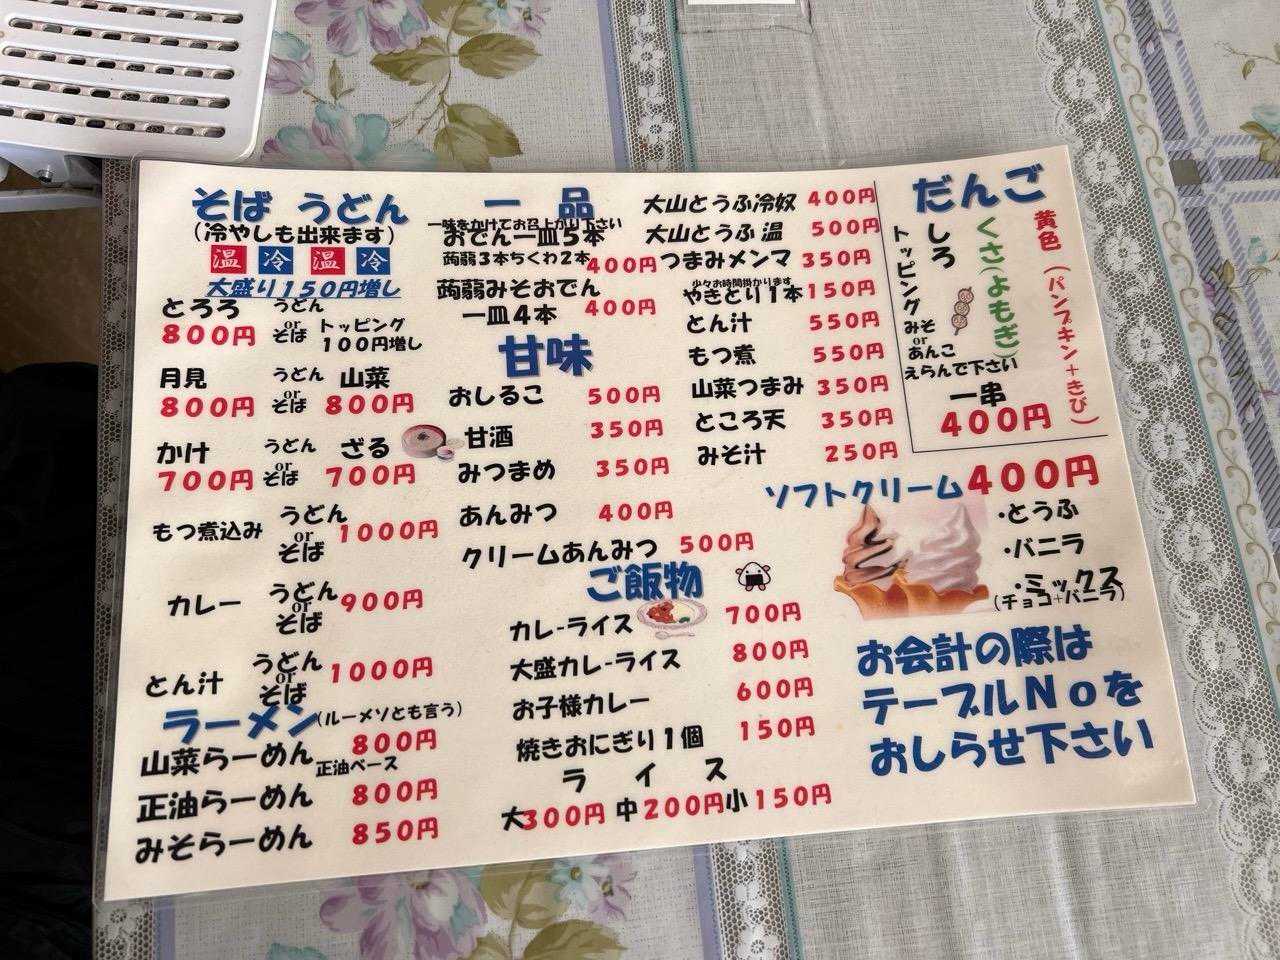 そば うどん
(冷やしも出来ます)
温 冷 温 冷
大盛り150円増し
とろろ うどん
or
そば
800円
トッピング
100円増し
月見 うどん
or
そば
800円
山菜
800円
かけ うどん
or
そば
700円
ざる
700円
もつ煮込み うどん
or
そば
1000円
カレー うどん
or
そば
900円
とん汁 うどん
or
そば
1000円
ラーメン(ルーメソとも言う)
山菜らーめん 800円
正油ベース
正油らーめん 800円
みそらーめん 850円
一 品
一味をかけてお召上がり下さい
おでん一皿5本
蒟蒻3本ちくわ2本 400円
蒟蒻みそおでん
一皿4本 400円
甘味
おしるこ 500円
甘酒 350円
みつまめ 350円
あんみつ 400円
クリームあんみつ 500円
ご飯物
カレーライス 700円
大盛カレーライス 800円
お子様カレー 600円
焼きおにぎり1個 150円
ラ イ ス
大300円 中200円 小150円
大山とうふ冷奴 400円
大山とうふ温 500円
つまみメンマ 350円
少々お時間掛かります
やきとり1本 150円
とん汁 550円
もつ煮 550円
山菜つまみ 350円
ところ天 350円
みそ汁 250円
だんご
黄色(パンプキン+きび)
くさ(よもぎ)
しろ
トッピング
みそ
or
あんこ
えらんで下さい
一串
400円
ソフトクリーム400円
・とうふ
・バニラ
・ミックス
(チョコ+バニラ)
お会計の際は
テーブルNoを
おしらせ下さい